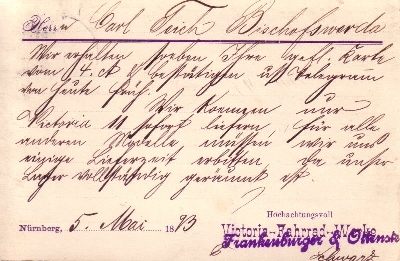 Herrn Carl Teich Bischofswerda
Wir erhalten soeben Ihre gefl. Karte
vom 4. ct & bestätigen u/ Telegram
von heute früh.
Wir koennen nur
Victoria 11 sofort liefern, für alle
anderen Modelle müssen wir uns
einzige Lieferzeit erbitten da unser
Lager vollständig geräumt ist.
Hochachtungsvoll
Nürnberg, 5. Mai 1893
Victoria-Fahrrad-Werke
Frankenburger & Ottenstein